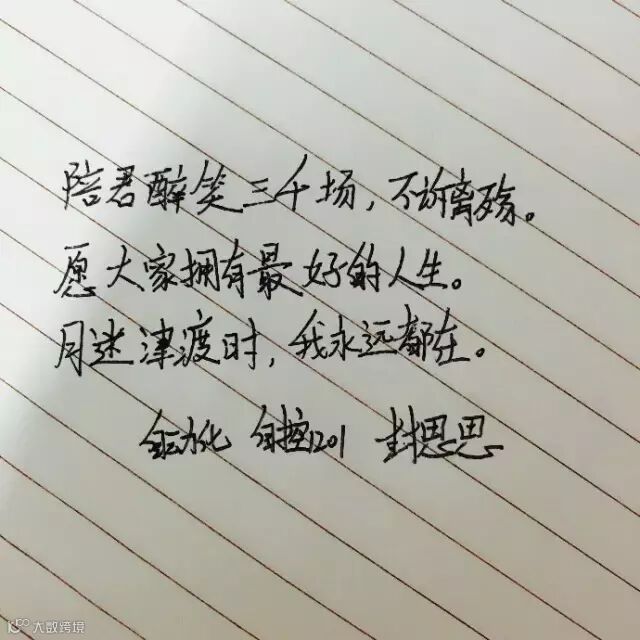 陪君醉笑三千场，不诉离殇。
愿大家拥有最好的人生。
月迷津渡时，我永远都在。
自控1201 封思思
大数跨境